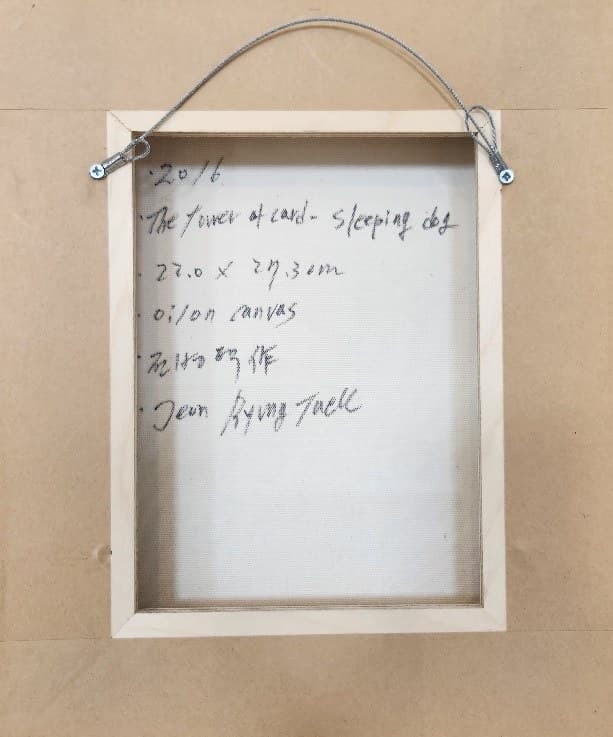 · 2016
· The Tower of card - Sleeping dog
· 22.0 x 27.3cm
· oil on canvas
· 作
· Jeon Kyung Taek